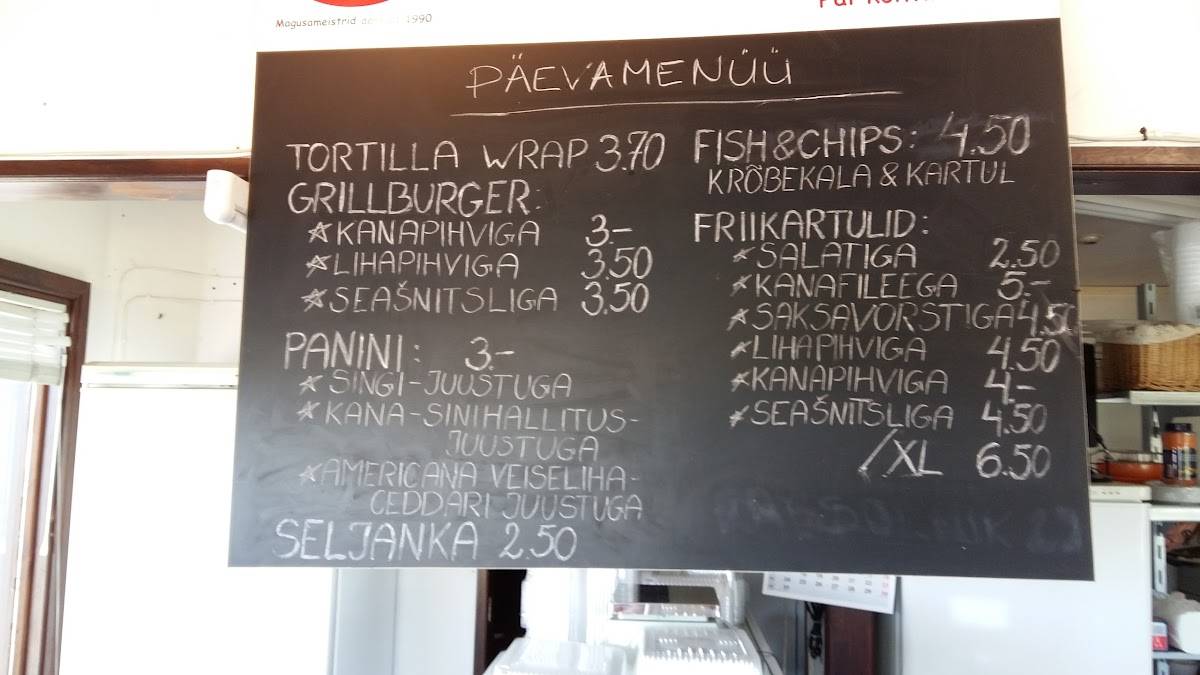 Magusameistrid 1990
PÄEVAMENÜÜ
TORTILLA WRAP 3.70
GRILLBURGER:
KANAPIHVIGA 3.-
LIHAPIHVIGA 3.50
SEAŠNITSLIGA 3.50
PANINI: 3.-
SINGI-JUUSTUGA
KANA-SINIHALLITUS-
JUUSTUGA
AMERICANA VEISELIHA-
CEDDARI JUUSTUGA
SELJANKA 2.50
FISH&CHIPS: 4.50
KRÕBEKALA & KARTUL
FRIIKARTULID:
SALATIGA 2.50
KANAFILEEGA 5.-
SAKSAVORSTIGA 4.50
LIHAPIHVIGA 4.50
KANAPIHVIGA 4.-
SEAŠNITSLIGA 4.50
/XL 6.50